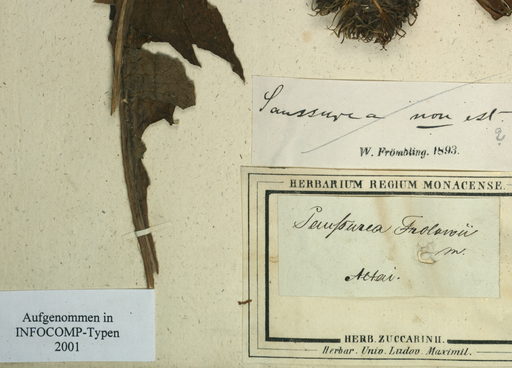 Saussurea non est
?
W. Frömbling. 1893.
HERBARIUM REGIUM MONACENSE.
Saussurea Frolowii
m.
Altai.
HERB. ZUCCARINII.
Herbar. Univ. Ludov. Maximil.
Aufgenommen in
INFOCOMP-Typen
2001